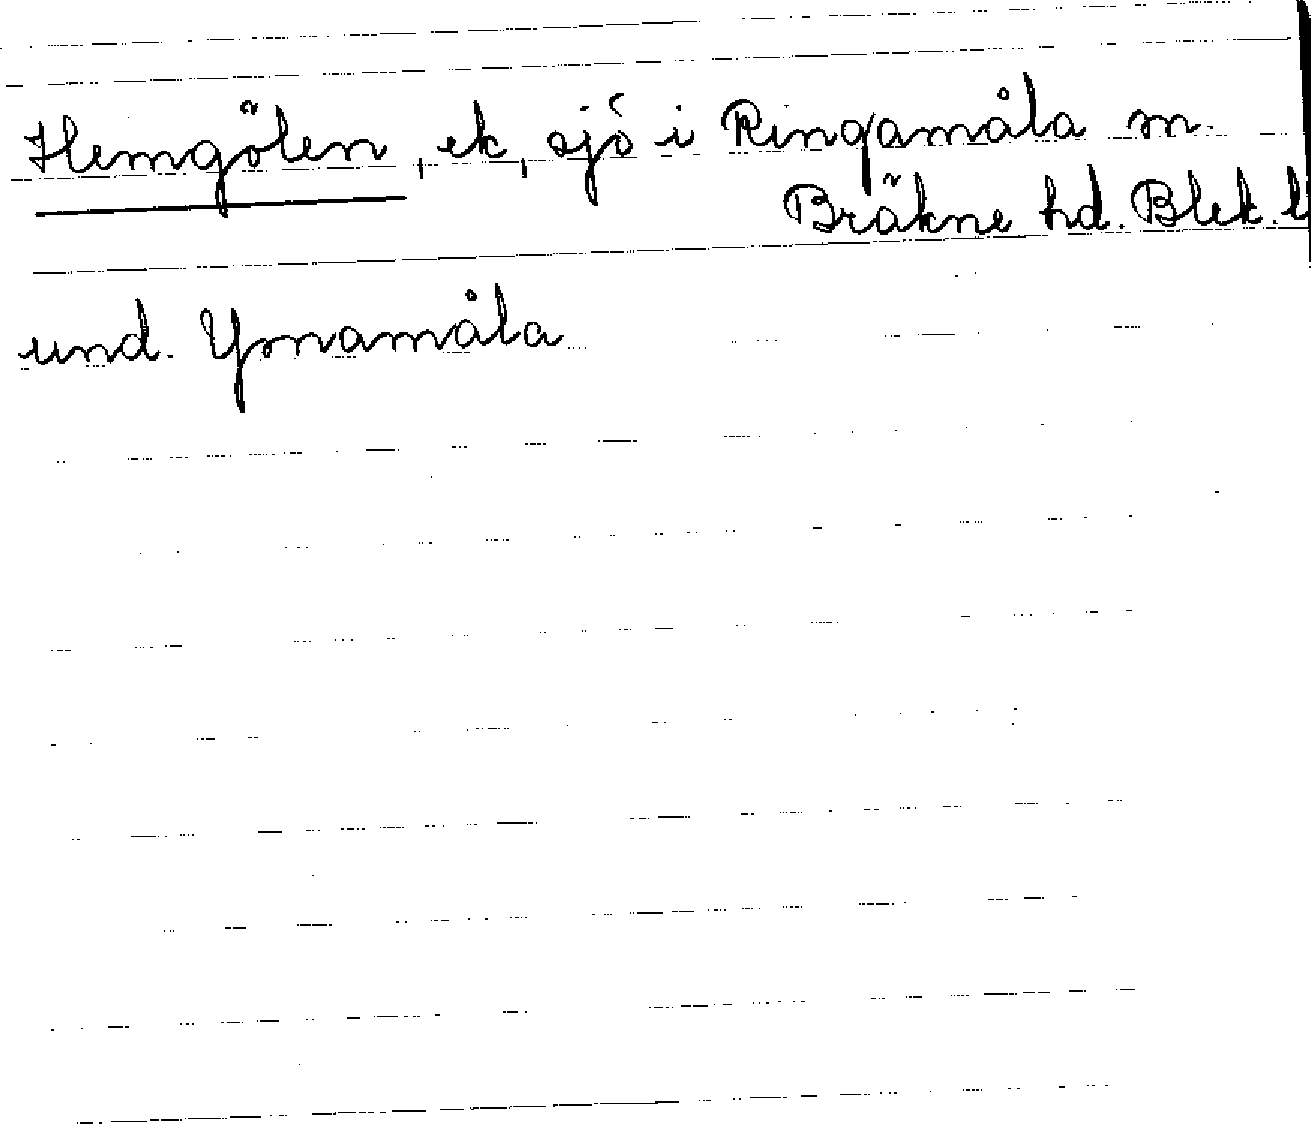 Hemgölen, ek, sjö i Ringamåla m.
Bräkne hd. Blek. l
und. Ymamåla